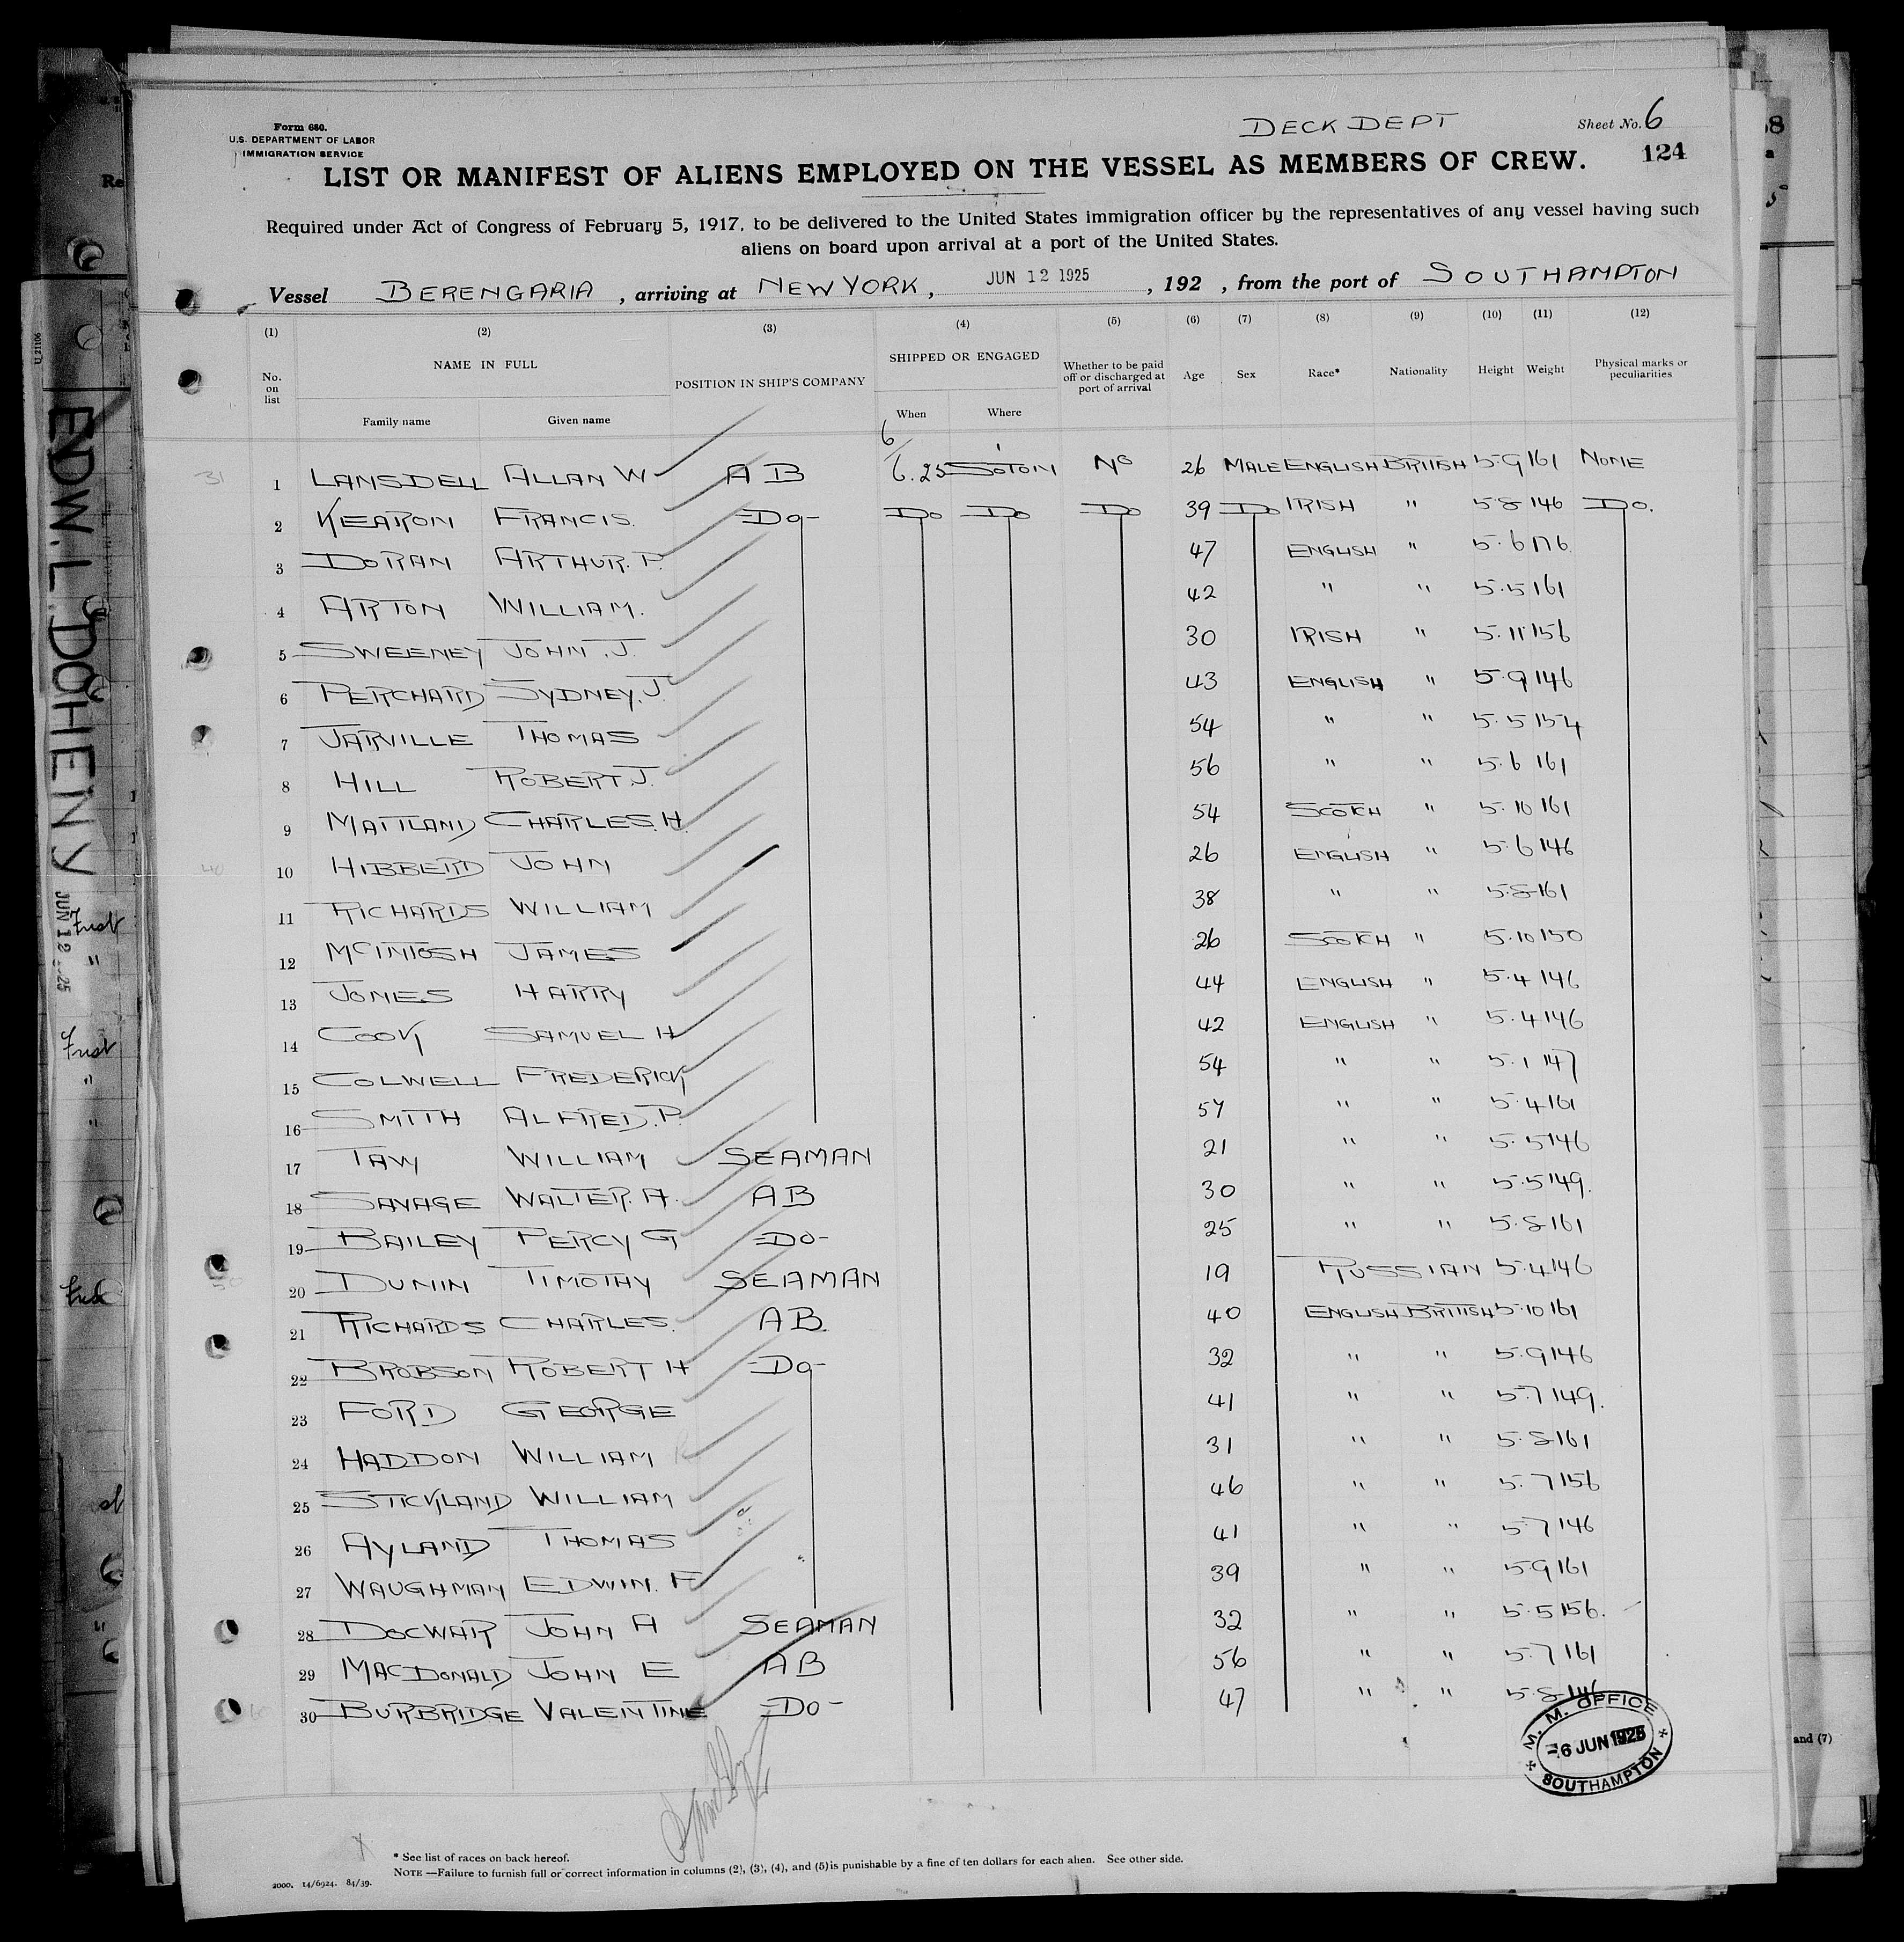 DECK DEPT
Sheet No. 6
Form 680.
U.S. DEPARTMENT OF LABOR
IMMIGRATION SERVICE
124
LIST OR MANIFEST OF ALIENS EMPLOYED ON THE VESSEL AS MEMBERS OF CREW.
Required under Act of Congress of February 5, 1917, to be delivered to the United States immigration officer by the representatives of any vessel having such
aliens on board upon arrival at a port of the United States.
Vessel BERENGARIA, arriving at NEW YORK, JUN 12 1925, 192 , from the port of SOUTHAMPTON
(1) (2) (3) (4) (5) (6) (7) (8) (9) (10) (11) (12)
No. on list NAME IN FULL POSITION IN SHIP'S COMPANY SHIPPED OR ENGAGED Whether to be paid off or discharged at port of arrival Age Sex Race* Nationality Height Weight Physical marks or peculiarities
Family name Given name When Where
1 LANSDELL ALLAN W AB 6/6.25 SOTON NO 26 MALE ENGLISH BRITISH 5-9 161 NONE
2 KEARON FRANCIS. -DO- DO DO DO 39 DO IRISH " 5-8 146 DO.
3 DORAN ARTHUR. P. 47 ENGLISH " 5.6 176
4 ARTON WILLIAM. 42 " " 5.5 161
5 SWEENEY JOHN. J. 30 IRISH " 5.11 156
6 PERCHARD SYDNEY. J. 43 ENGLISH " 5.9 146
7 JARVILLE THOMAS 54 " " 5.5 154
8 HILL ROBERT. J. 56 " " 5.6 161
9 MAITLAND CHARLES. H. 54 SCOTCH " 5.10 161
10 HIBBERD JOHN 26 ENGLISH " 5.6 146
11 RICHARDS WILLIAM 38 " " 5.8 161
12 MCINTOSH JAMES 26 SCOTCH " 5.10 150
13 JONES HARRY 44 ENGLISH " 5.4 146
14 COOK SAMUEL H 42 ENGLISH " 5.4 146
15 COLWELL FREDERICK 54 " " 5.1 147
16 SMITH ALFRED. P. 57 " " 5.4 161
17 WILLIAM SEAMAN 21 " " 5.5 146
18 SAVAGE WALTER. A. AB 30 " " 5.5 149.
19 BAILEY PERCY G -DO- 25 " " 5.8 161
20 DUNIN TIMOTHY SEAMAN 19 RUSSIAN 5.4 146
21 RICHARDS CHARLES. AB. 40 ENGLISH BRITISH 5.10 161
22 BROBSON ROBERT H -DO- 32 " " 5.9 146
23 FORD GEORGE 41 " " 5.7 149.
24 HADDON WILLIAM 31 " " 5.8 161
25 STICKLAND WILLIAM 46 " " 5.7 156
26 AYLAND THOMAS 41 " " 5.7 146
27 WAUGHMAN EDWIN. F 39 " " 5.9 161
28 DOCWAR JOHN A SEAMAN 32 " " 5.5 156.
29 MACDONALD JOHN E AB 56 " " 5.7 161
30 BURBRIDGE VALENTINE -DO- 47 " " 5.8 146
M. M. OFFICE
6 JUN 1925
SOUTHAMPTON
* See list of races on back hereof.
NOTE —Failure to furnish full or correct information in columns (2), (3), (4), and (5) is punishable by a fine of ten dollars for each alien. See other side.
2000. 14/6924. 84/39.
EDW. L. DOHENY
JUN 12
U 21106
and (7)